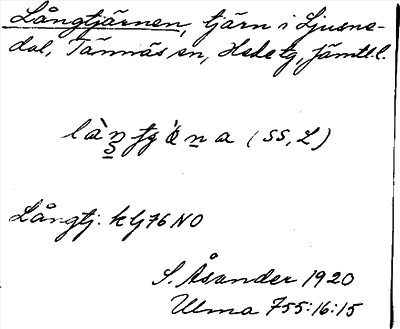 Långtjärnen, tjärn i Ljusne-
dal, Tännäs sn, Hede tg, Jämtl. l.
(SS, L)
Långtj: kfj 76 NO
S. Åsander 1920
Ulma 755:16:15